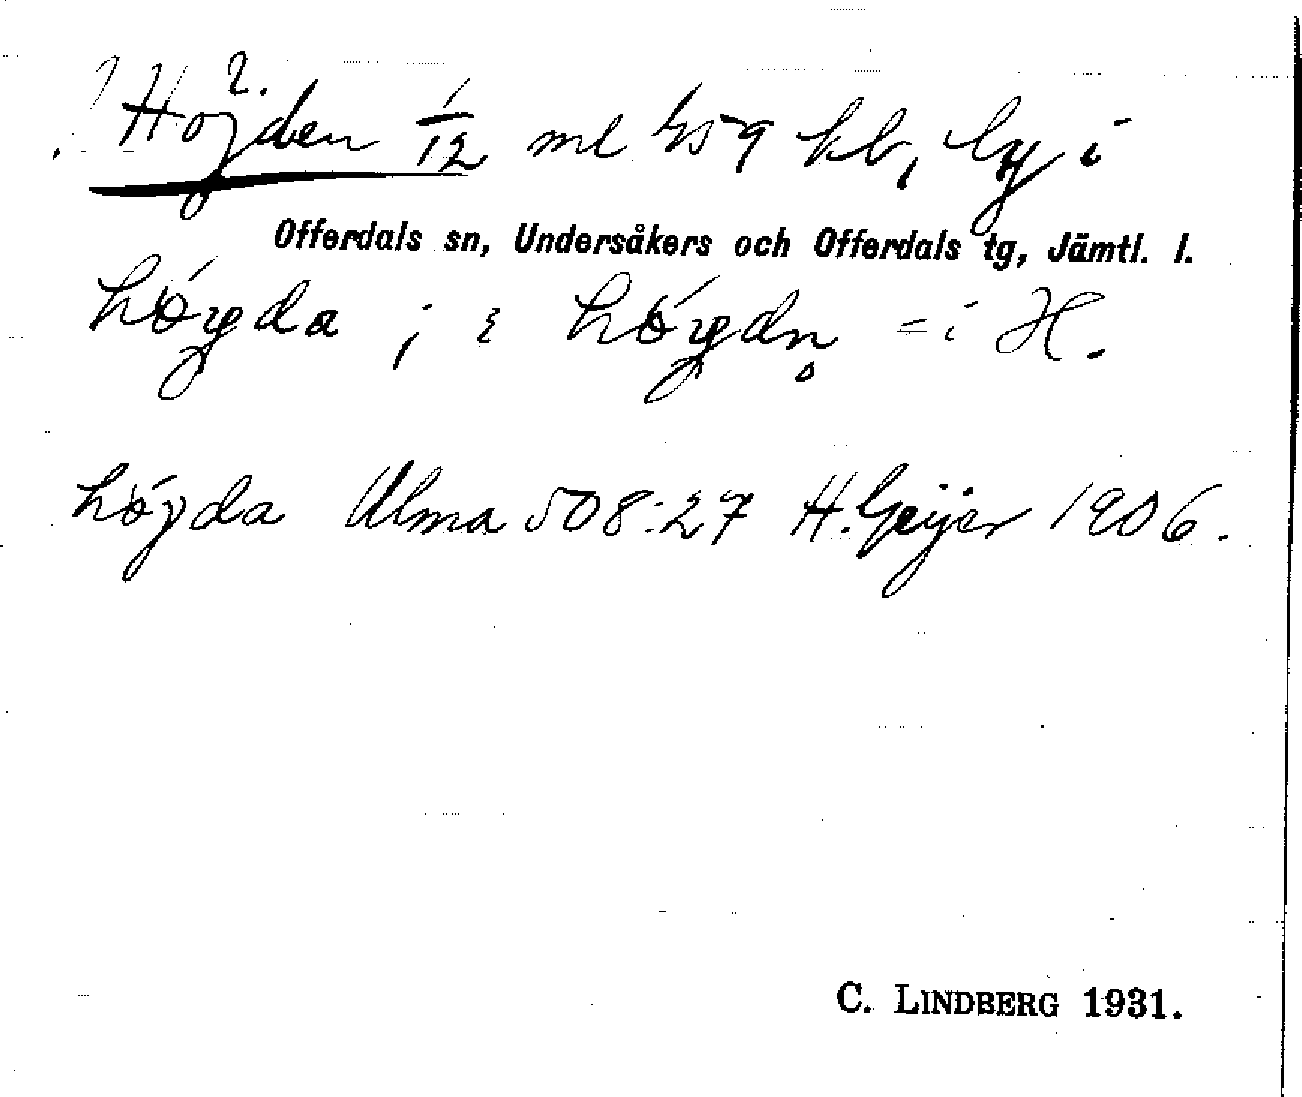 2.
Höjden 1/12 ml 459 kb, by i
Offerdals sn, Undersåkers och Offerdals tg, Jämtl. l.
höyda ; i höydn̥ = i H.
höyda Ulma 508:27 H. Geijer 1906.
C. LINDBERG 1931.